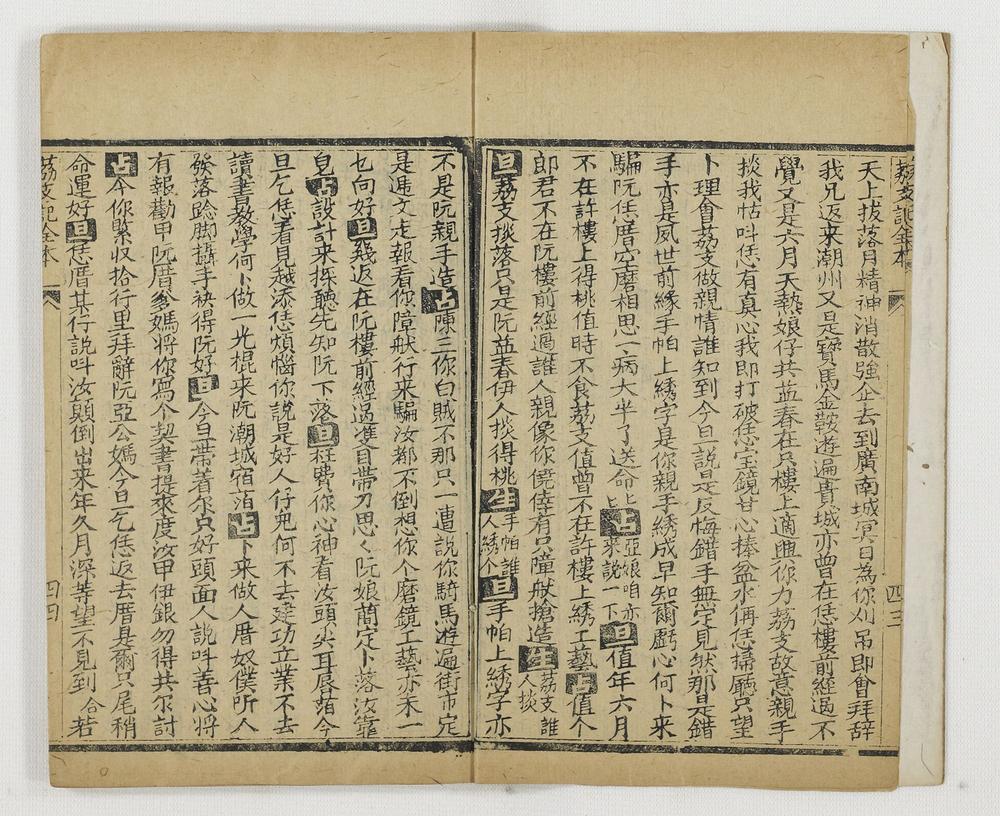 荔支記全本
四三
天上拔落月精神消散強企去到廣南城冥日為你刈吊即會拜辞
我兄返来潮州又是寶馬金鞍遊遍書城亦曾在恁樓前經過不
覺又是六月天熱娘仔共益春在只樓上適興你力荔支故意親手
掞我怙叫恁有真心我即打破恁宝鏡甘心捧盆水俩恁掃廳只望
卜理會荔支做親情誰知到今旦說是反悔錯手無定見然那是錯
手亦是夙世前緣手帕上綉字是你親手綉成早知爾虧心何卜来
騙阮恁厝空磨相思一病大半了送命上占亞娘咱亦上来說一下旦值年六月
不在許樓上得桃值時不食荔支值曾不在許樓上綉工藝占值个
郎君不在阮樓前經過誰人親像你僥倖有只障猷搶造生荔支誰人掞
旦荔支掞落只是阮益春伊人掞得桃生手帕誰人綉个旦手帕上綉字亦
不是阮親手造占陳三你白賊不那只一遭說你騎馬遊遍街市定
是遞文走報看你障猷行来騙汝都不到想你个磨鏡工藝亦未一
乜向好旦幾返在阮樓前經過准目帶刀思〻阮娘蔺定卜落汝靠
皂占設計来探聽先知阮下落旦枉費你心神看汝頭尖耳唇萡今
旦乞恁看見越添恁煩惱你說是好人仔兒何不去建功立業不去
讀書教學何卜做一光棍来阮潮城宿萡占卜来做人厝奴僕所人
發落跄脚攝手袂得阮好旦今旦帶着尔只好頭面人說叫善心將
有報勸甲阮厝爹媽將你寫个契書提來度汝甲伊銀勿得共尔討
占今你緊收拾行里拜辭阮亞公媽今日乞恁返去厝是爾只尾稍
命運好旦恁厝某行說叫汝顛倒出来年久月深等望不見到合若
荔支記全本
四四